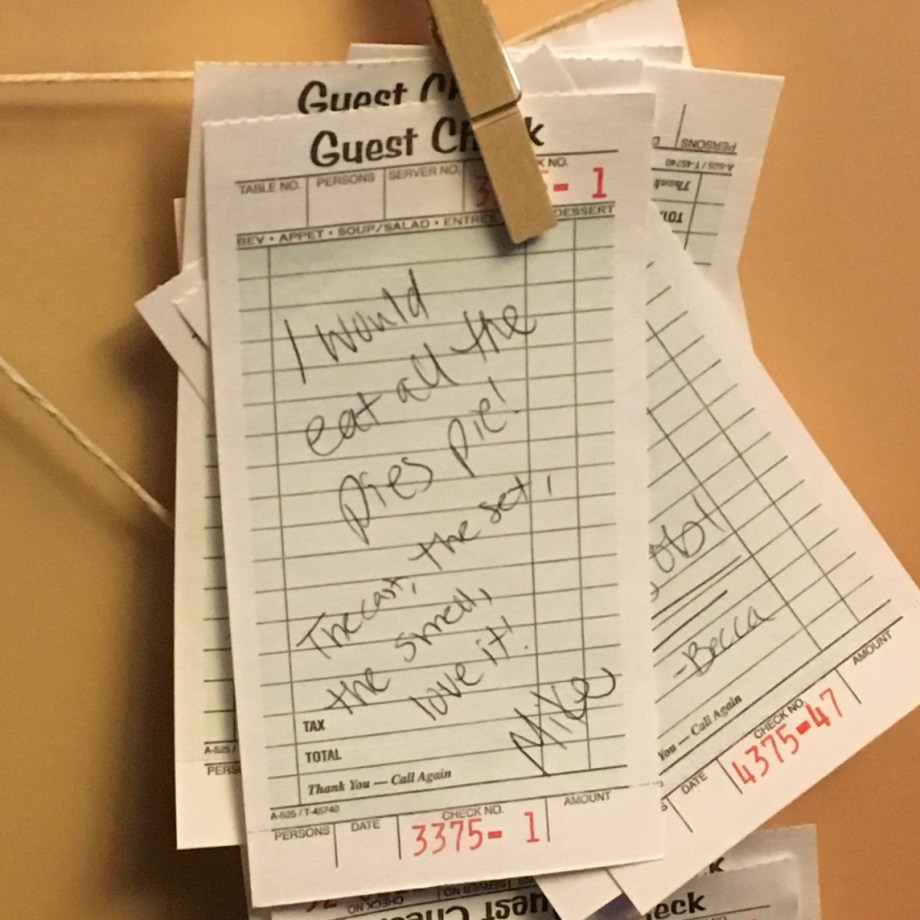 Guest
Guest Ch k
TABLE NO. PERSONS SERVER NO. K NO.
3 - 1
BEV • APPET • SOUP/SALAD • ENTREE DESSERT
I would
eat all the
pies pie!
The cast, the set,
the smell,
love it!
Mike
TAX
TOTAL
Thank You — Call Again
A-525 / T-45740
PERSONS DATE CHECK NO. AMOUNT
3375- 1
-Becca
You — Call Again
DATE CHECK NO. AMOUNT
4375-47
PERSONS
A-525 / T-45740
Thank
TOT
A-525 /
PERS
SERVER NO.
CHECK NO.
uest Che
k
eck